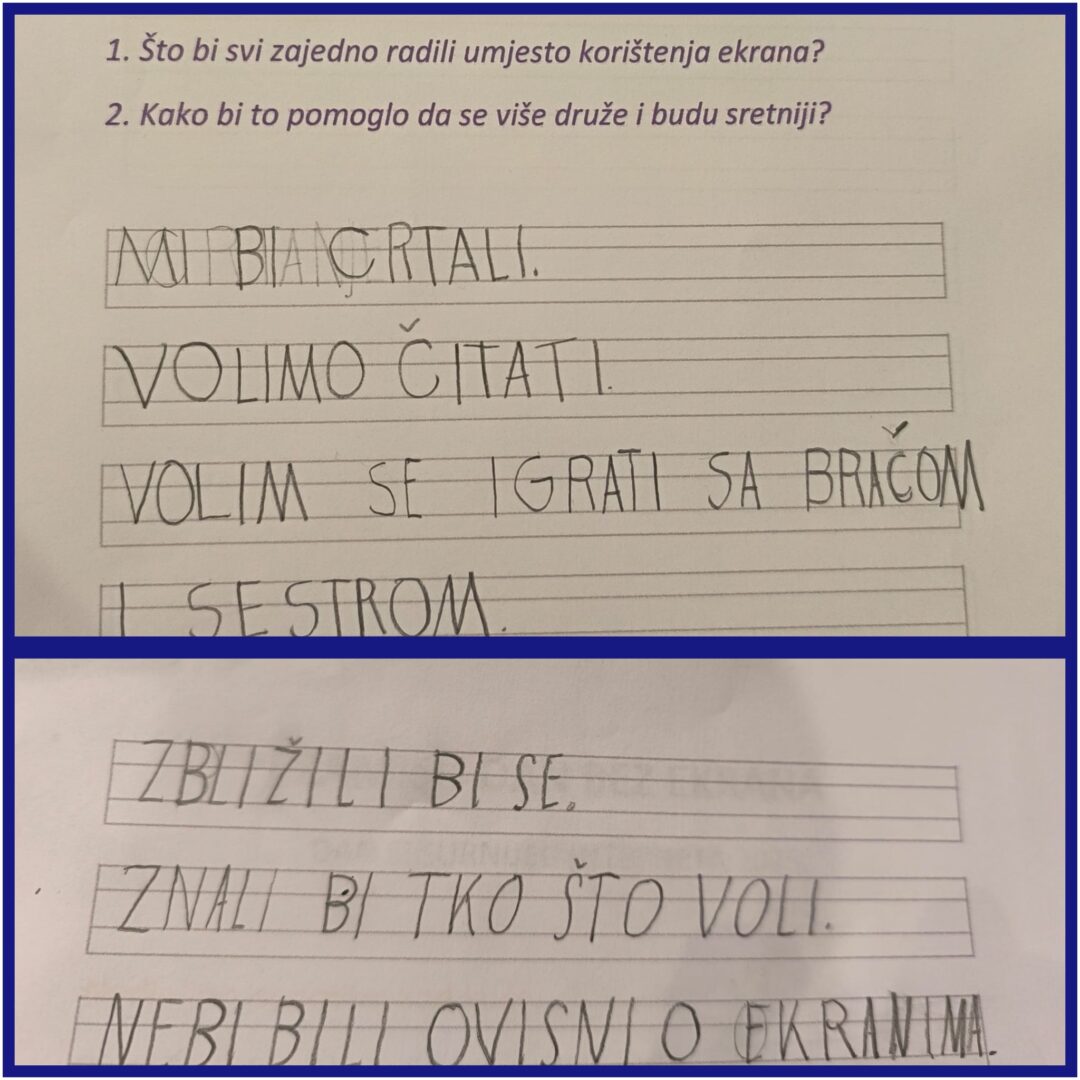 1. Što bi svi zajedno radili umjesto korištenja ekrana?
2. Kako bi to pomoglo da se više druže i budu sretniji?
MI BI CRTALI.
VOLIMO ČITATI.
VOLIM SE IGRATI SA BRAČOM
I SESTROM.
ZBLIŽILI BI SE.
ZNALI BI TKO ŠTO VOLI.
NEBI BILI OVISNI O EKRANIMA.